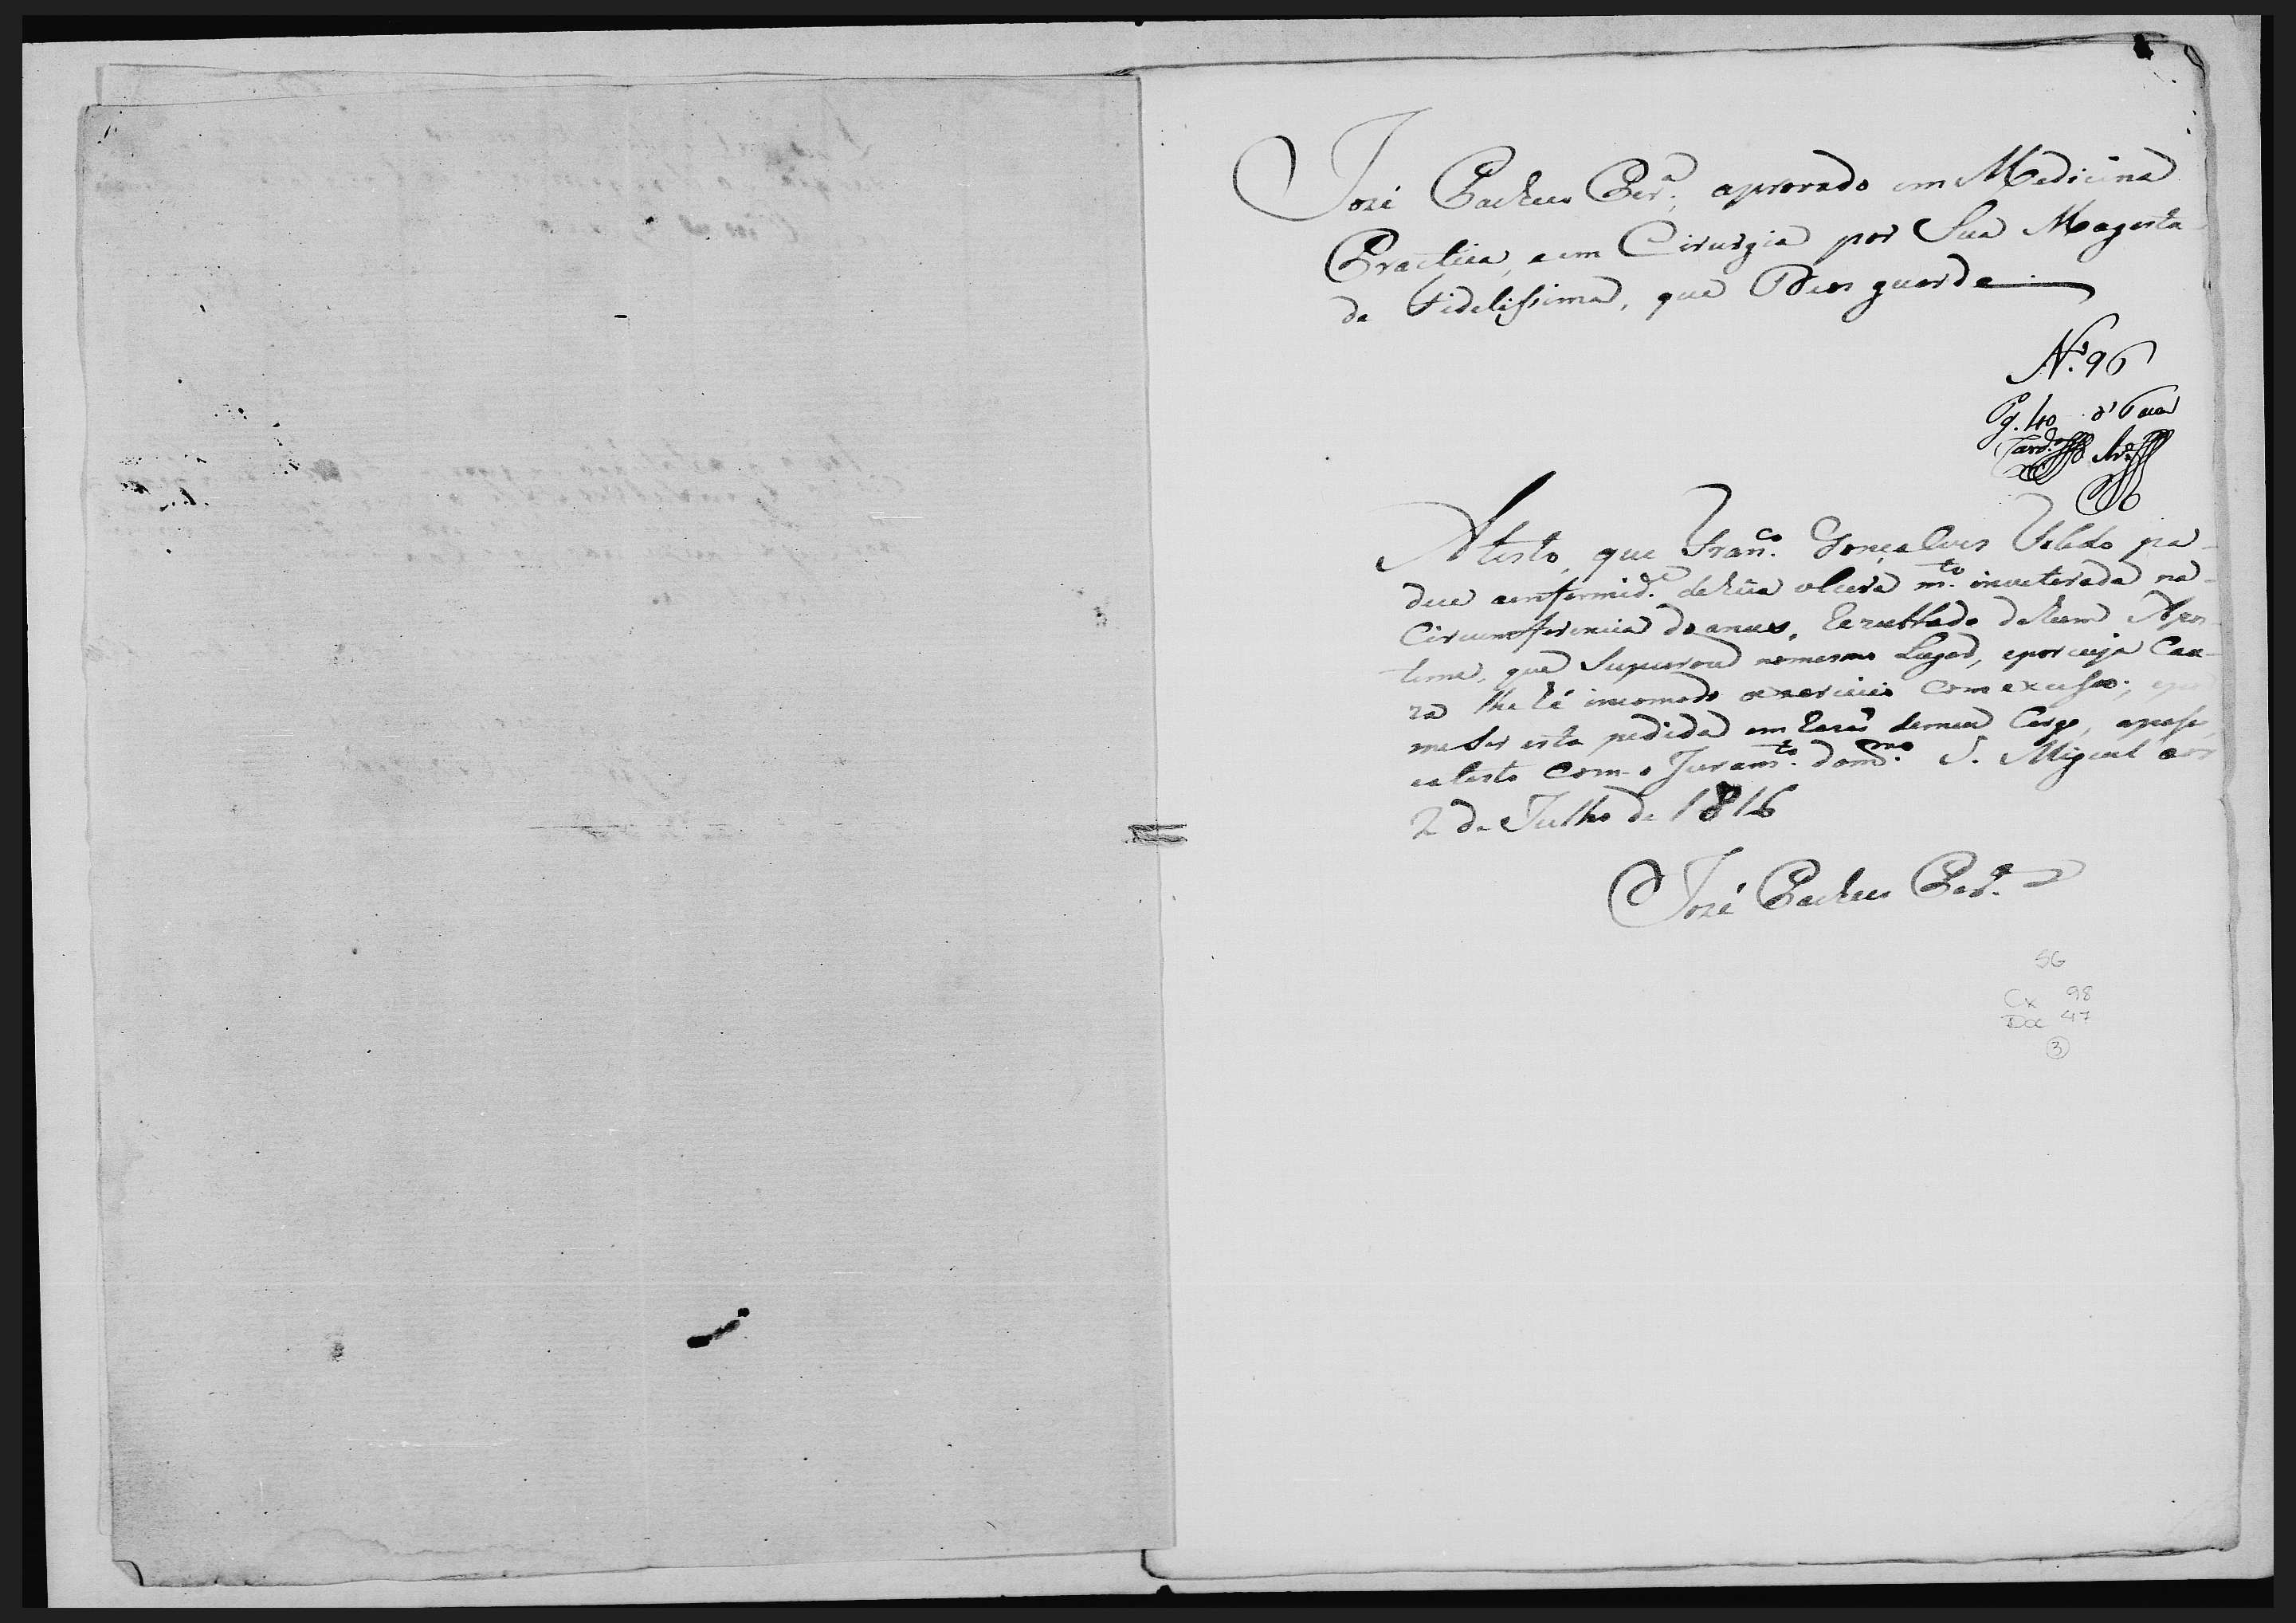 José Pacheco Per.ª, aprovado em Medicina
Practica, eem Cirurgia por Sua Magesta-
de Fidelissima, que Deos guarde
N.º 96
Pg. 40 r.s
Atesto, que Fran.co Gonçalves Velido pa-
dece aenfermid.e dehũa ulcera m.to inveterada na
Circumferencia do anus, rezultado dehum Apos-
tema, que Supurou nomesmo Lugar, eporcuja Cau-
za lhe hé incomodo oexercicio com excesso;
me ser esta pedida em demeu Cargo, apasei,
eatesto com o Juram.to dom.mo S. Miguel aos
2 de Julho de 1816
José Pacheco Per.ª
SG
Cx 98
Doc 47
3